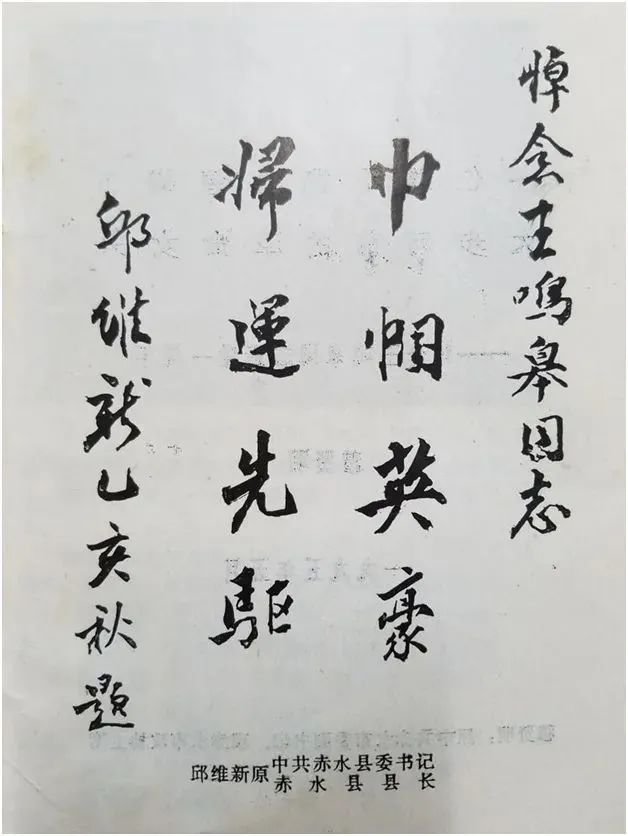 悼念王鳴皋同志
巾帼英豪
婦運先驅
邱維新乙亥秋題
邱维新原中共赤水县委书记
赤水县县长